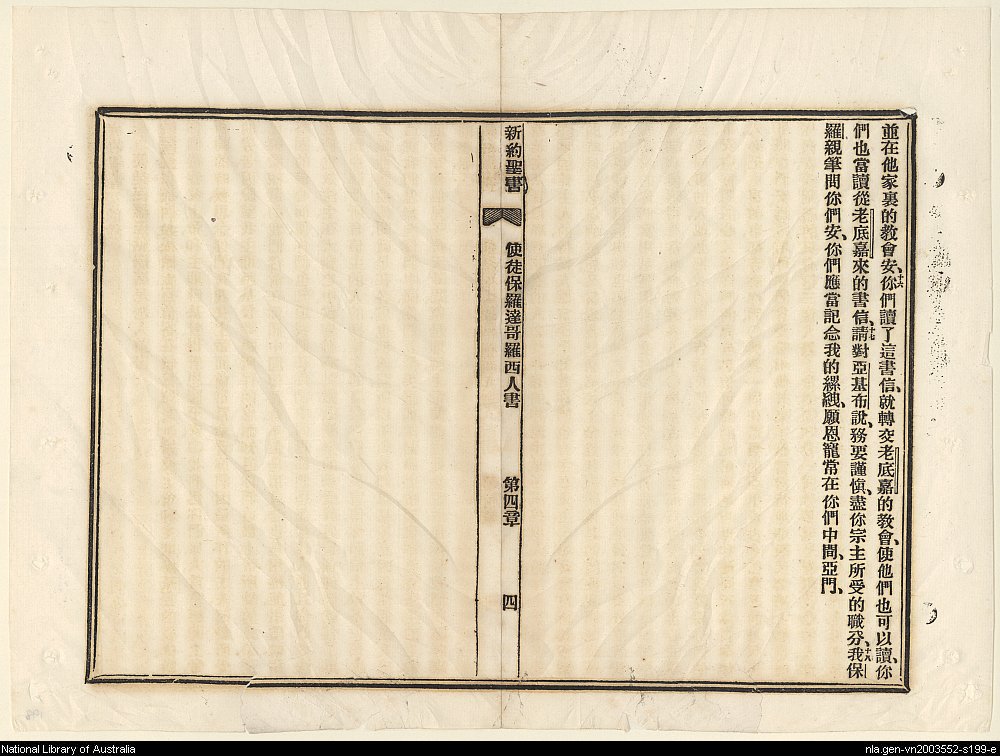 並在他家裏的教會安、十六你們讀了這書信、就轉交老底嘉的教會、使他們也可以讀、你
們也當讀從老底嘉來的書信、十七請對亞基布說、務要謹愼、盡你宗主所受的職分、十八我保
羅親筆問你們安、你們應當記念我的縲絏、願恩寵常在你們中間、亞門、
新約聖書 使徒保羅達哥羅西人書 第四章 四
National Library of Australia
nla.gen-vn2003552-s199-e